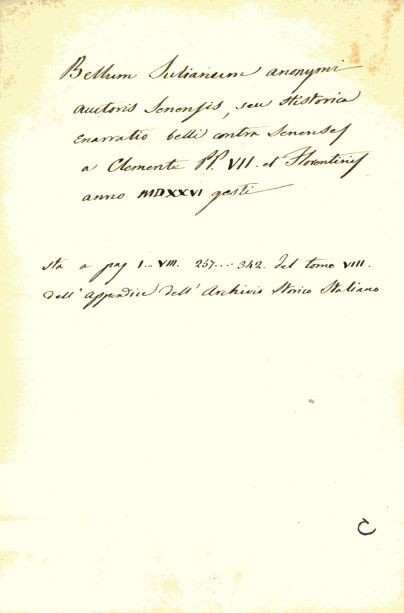 Bellum Julianum anonymi
auctoris Senensis, seu Historica
Enarratio belli contra Senenses
a Clemente PP. VII. et Florentinis
anno MDXXVI gesti
sta a pag I... VIII. 257.... 342. del tomo VIII.
dell' appendice dell' Archivio Storico Italiano
C